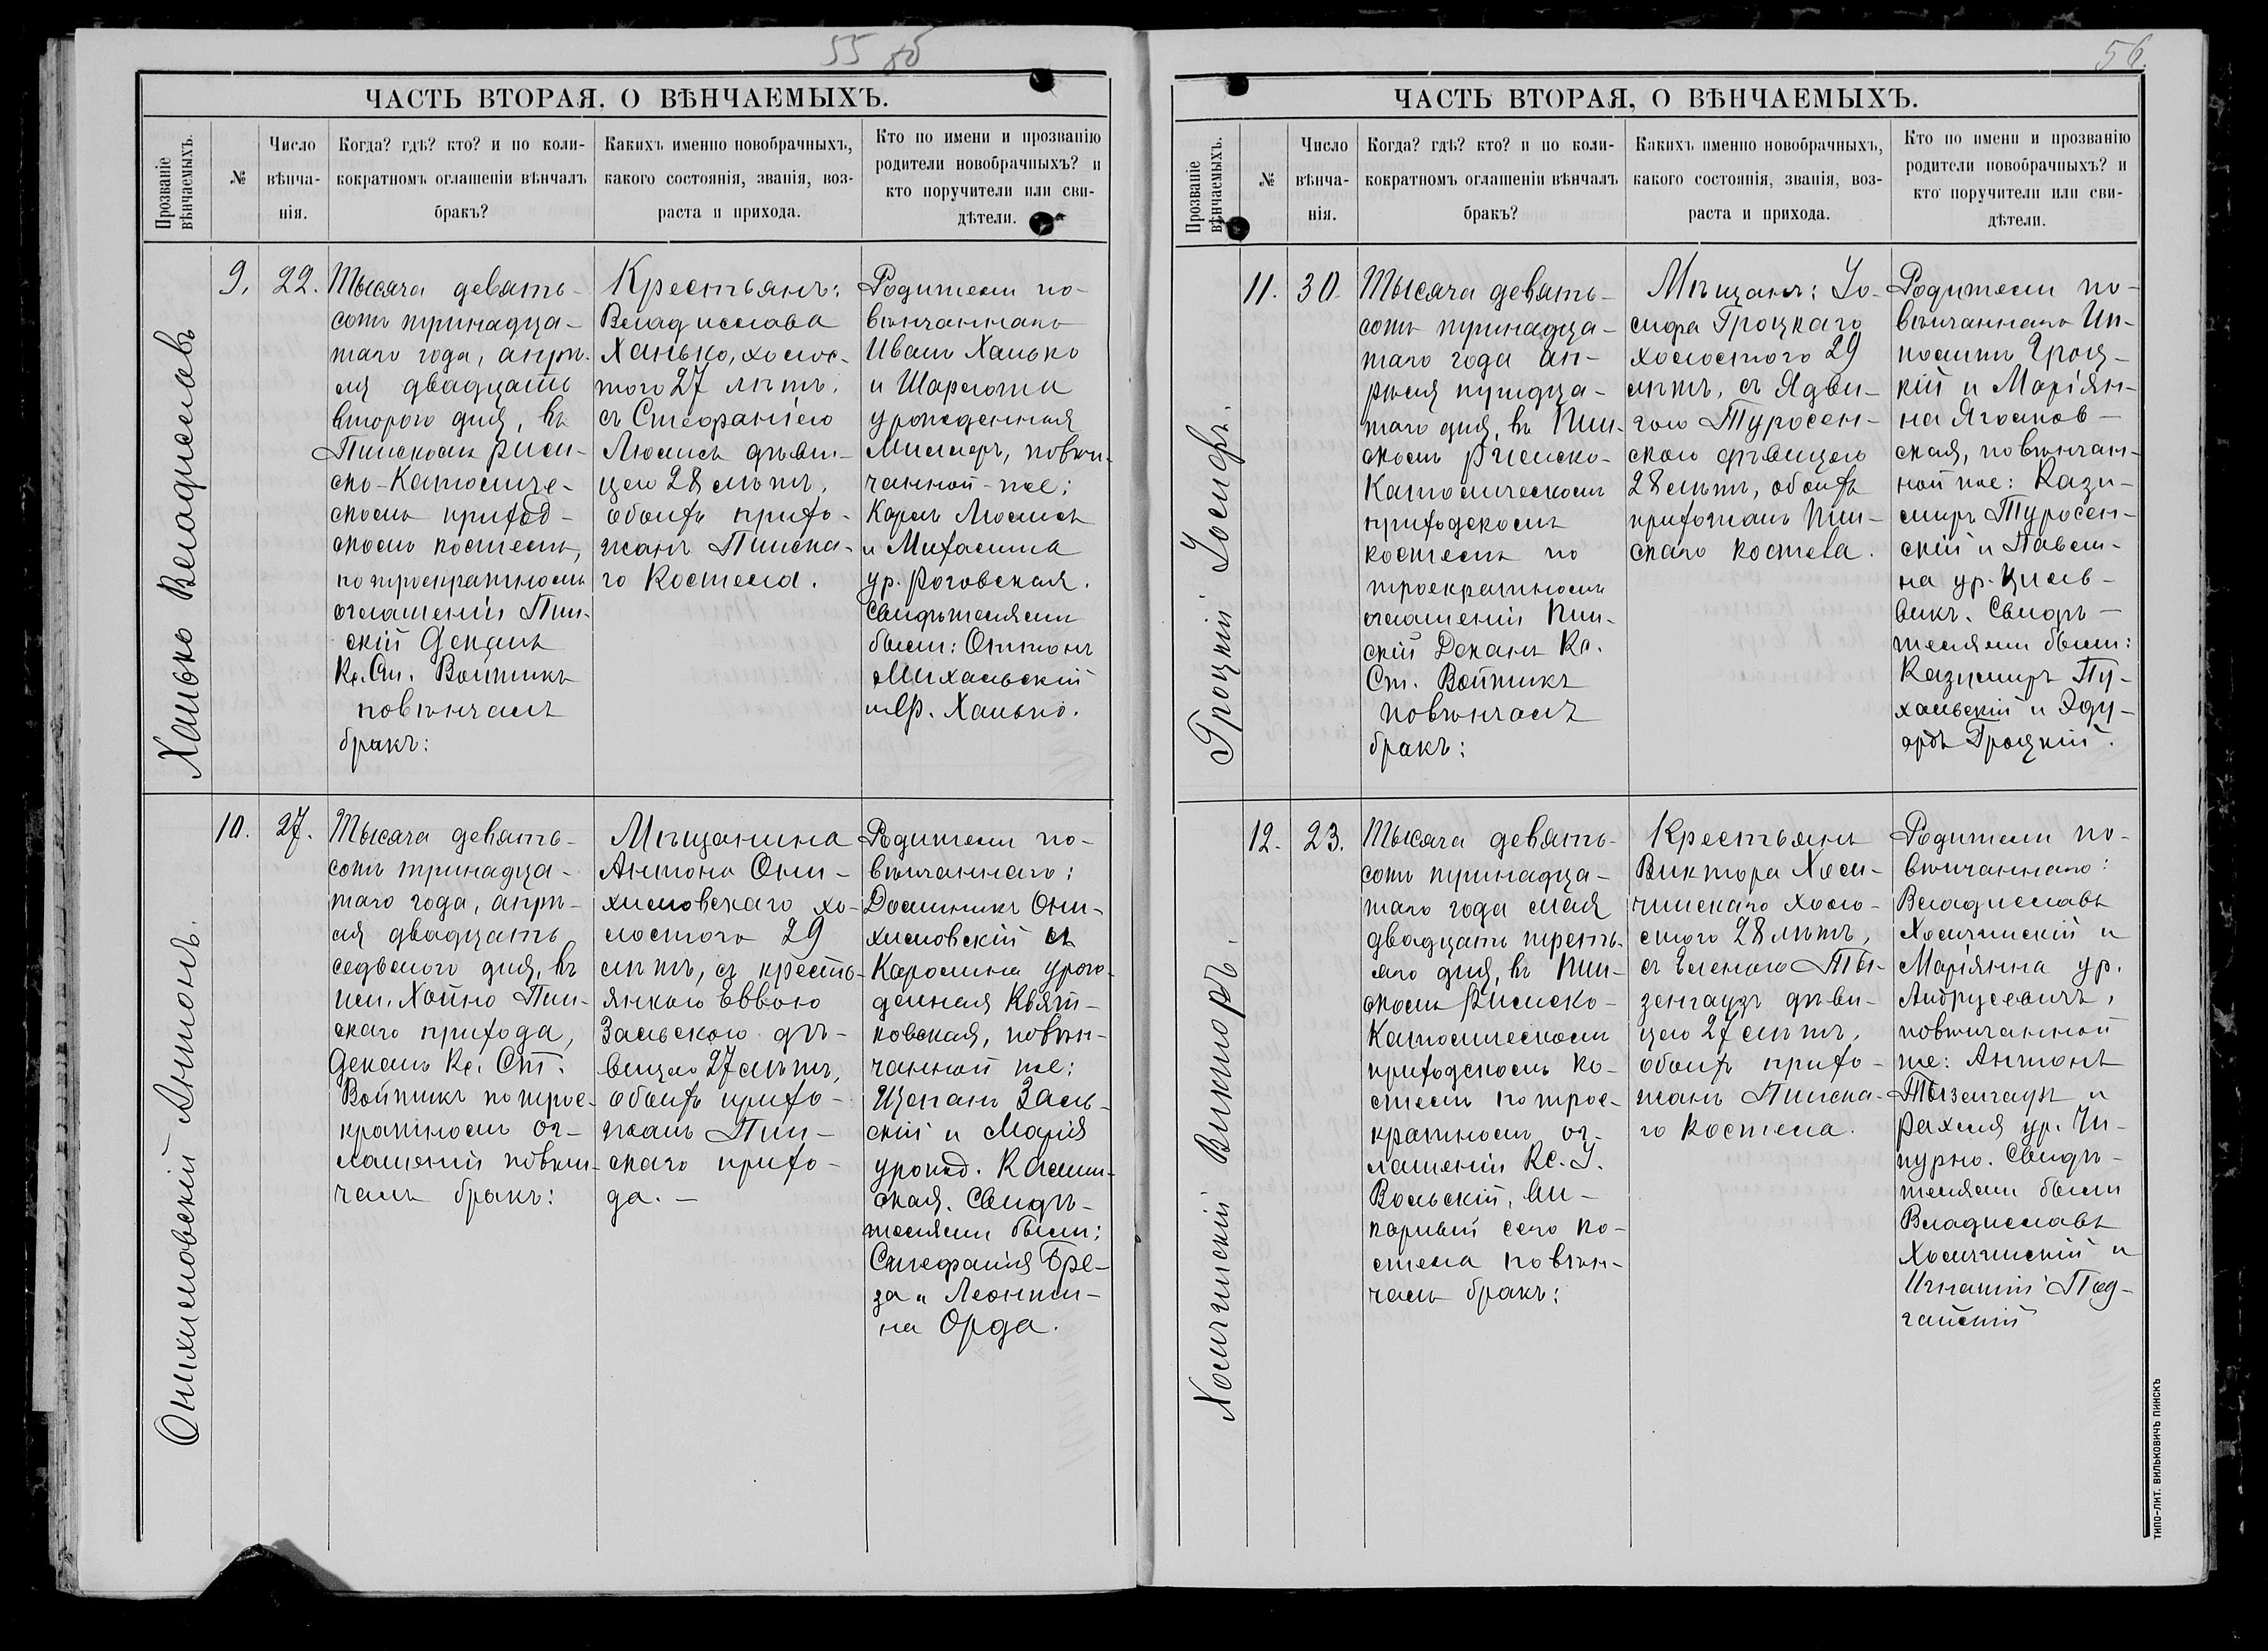 55
ЧАСТЬ ВТОРАЯ, О ВѢНЧАЕМЫХЪ.
Прозваніе
вѣнчаемыхъ.
№
Число
вѣнча-
нія.
Когда? гдѣ? кто? и по коли-
кократномъ оглашеніи вѣнчалъ
бракъ?
Какихъ именно новобрачныхъ,
какого состоянія, званія, воз-
раста и прихода.
Кто по имени и прозванію
родители новобрачныхъ? и
кто поручители или сви-
дѣтели.
Ханько Владиславъ
9.
22.
Тысяча девять-
сотъ тринадца-
таго года, апрѣ-
ля двадцать
второго дня, въ
Пинскомъ Рим-
ско-Католиче-
скомъ приход-
скомъ костелѣ,
по троекратномъ
оглашеніи Пин-
скій Деканъ
Кс. Ст. Войтикъ
повѣнчалъ
бракъ:
Крестьянъ:
Владислава
Ханько, холос-
того 27 лѣтъ,
съ Стефаніею
Люлись дѣви-
цею 28 лѣтъ,
обоихъ прихо-
жанъ Пинска-
го костела.
Родители по-
вѣнчаннаго
Иванъ Ханько
и Шарлота
урожденная
Миллеръ, повѣн-
чанной-же:
Карлъ Люлись
и Михалина
ур. Роговская.
Свидѣтелями
были: Оттонъ
Михальскій
и Ф. Ханько.
Онихимовскій Антонъ.
10.
27.
Тысяча девять-
сотъ тринадца-
таго года, апрѣ-
ля двадцать
седьмого дня, въ
им. Хойно Пин-
скаго прихода,
Деканъ Кс. Ст.
Войтикъ по трое-
кратномъ ог-
лашеніи повѣн-
чалъ бракъ:
Мѣщанина
Антона Они-
химовскаго хо-
лостого 29
лѣтъ, съ кресть-
янкою Еввою
Зальскою дѣ-
вицею 27 лѣтъ,
обоихъ прихо-
жанъ Пин-
скаго прихо-
да. —
Родители по-
вѣнчаннаго:
Доминикъ Они-
химовскій и
Каролина урож-
денная Квят-
ковская, повѣн-
чанной же:
Щепанъ Заль-
скій и Марія
урожд. Калин-
ская. Свидѣ-
телями были:
Стефанія Бре-
за и Леонти-
на Орда.
56.
ЧАСТЬ ВТОРАЯ, О ВѢНЧАЕМЫХЪ.
Прозваніе
вѣнчаемыхъ.
№
Число
вѣнча-
нія.
Когда? гдѣ? кто? и по коли-
кократномъ оглашеніи вѣнчалъ
бракъ?
Какихъ именно новобрачныхъ,
какого состоянія, званія, воз-
раста и прихода.
Кто по имени и прозванію
родители новобрачныхъ? и
кто поручители или сви-
дѣтели.
Гроцкій Іосифъ.
11.
30.
Тысяча девять-
сотъ тринадца-
таго года ап-
рѣля тридца-
таго дня, въ Пин-
скомъ Римско-
Католическомъ
приходскомъ
костелѣ по
троекратномъ
оглашеніи Пин-
скій Деканъ Кс.
Ст. Войтикъ
повѣнчалъ
бракъ:
Мѣщанъ: Іо-
сифа Гроцкаго
холостого 29
лѣтъ, съ Ядви-
гою Туросен-
скою дѣвицею
28 лѣтъ, обоихъ
прихожанъ Пин-
скаго костела.
Родители по-
вѣнчаннаго Ип-
политъ Гроц-
кій и Маріян-
на Яголков-
ская, повѣнчан-
ной же: Кази-
миръ Туросен-
скій и Павли-
на ур. Циль-
викъ. Свидѣ-
телями были:
Казимиръ Пу-
хальскій и Эду-
ардъ Гроцкій.
Холичинскій Викторъ.
12.
23.
Тысяча девять-
сотъ тринадца-
таго года мая
двадцать треть-
яго дня, въ Пин-
скомъ Римско-
Католическомъ
приходскомъ ко-
стелѣ по трое-
кратномъ ог-
лашеніи Кс. У.
Вольскій, ви-
карный сего ко-
стела повѣн-
чалъ бракъ:
Крестьянъ
Виктора Холи-
чинскаго холо-
стого 28 лѣтъ,
съ Еленою Ты-
зенгаузъ дѣви-
цею 27 лѣтъ,
обоихъ прихо-
жанъ Пинска-
го костела.
Родители по-
вѣнчаннаго:
Владиславъ
Холичинскій и
Маріянна ур.
Андрусевичъ,
повѣнчанной
же: Антонъ
Тызенгаузъ и
Рахиля ур. Чи-
пурно. Свидѣ-
телями были
Владиславъ
Холичинскій и
Игнатій Под-
гайскій
ТИПО-ЛИТ. ВИЛЬКОВИЧЪ ПИНСКЪ